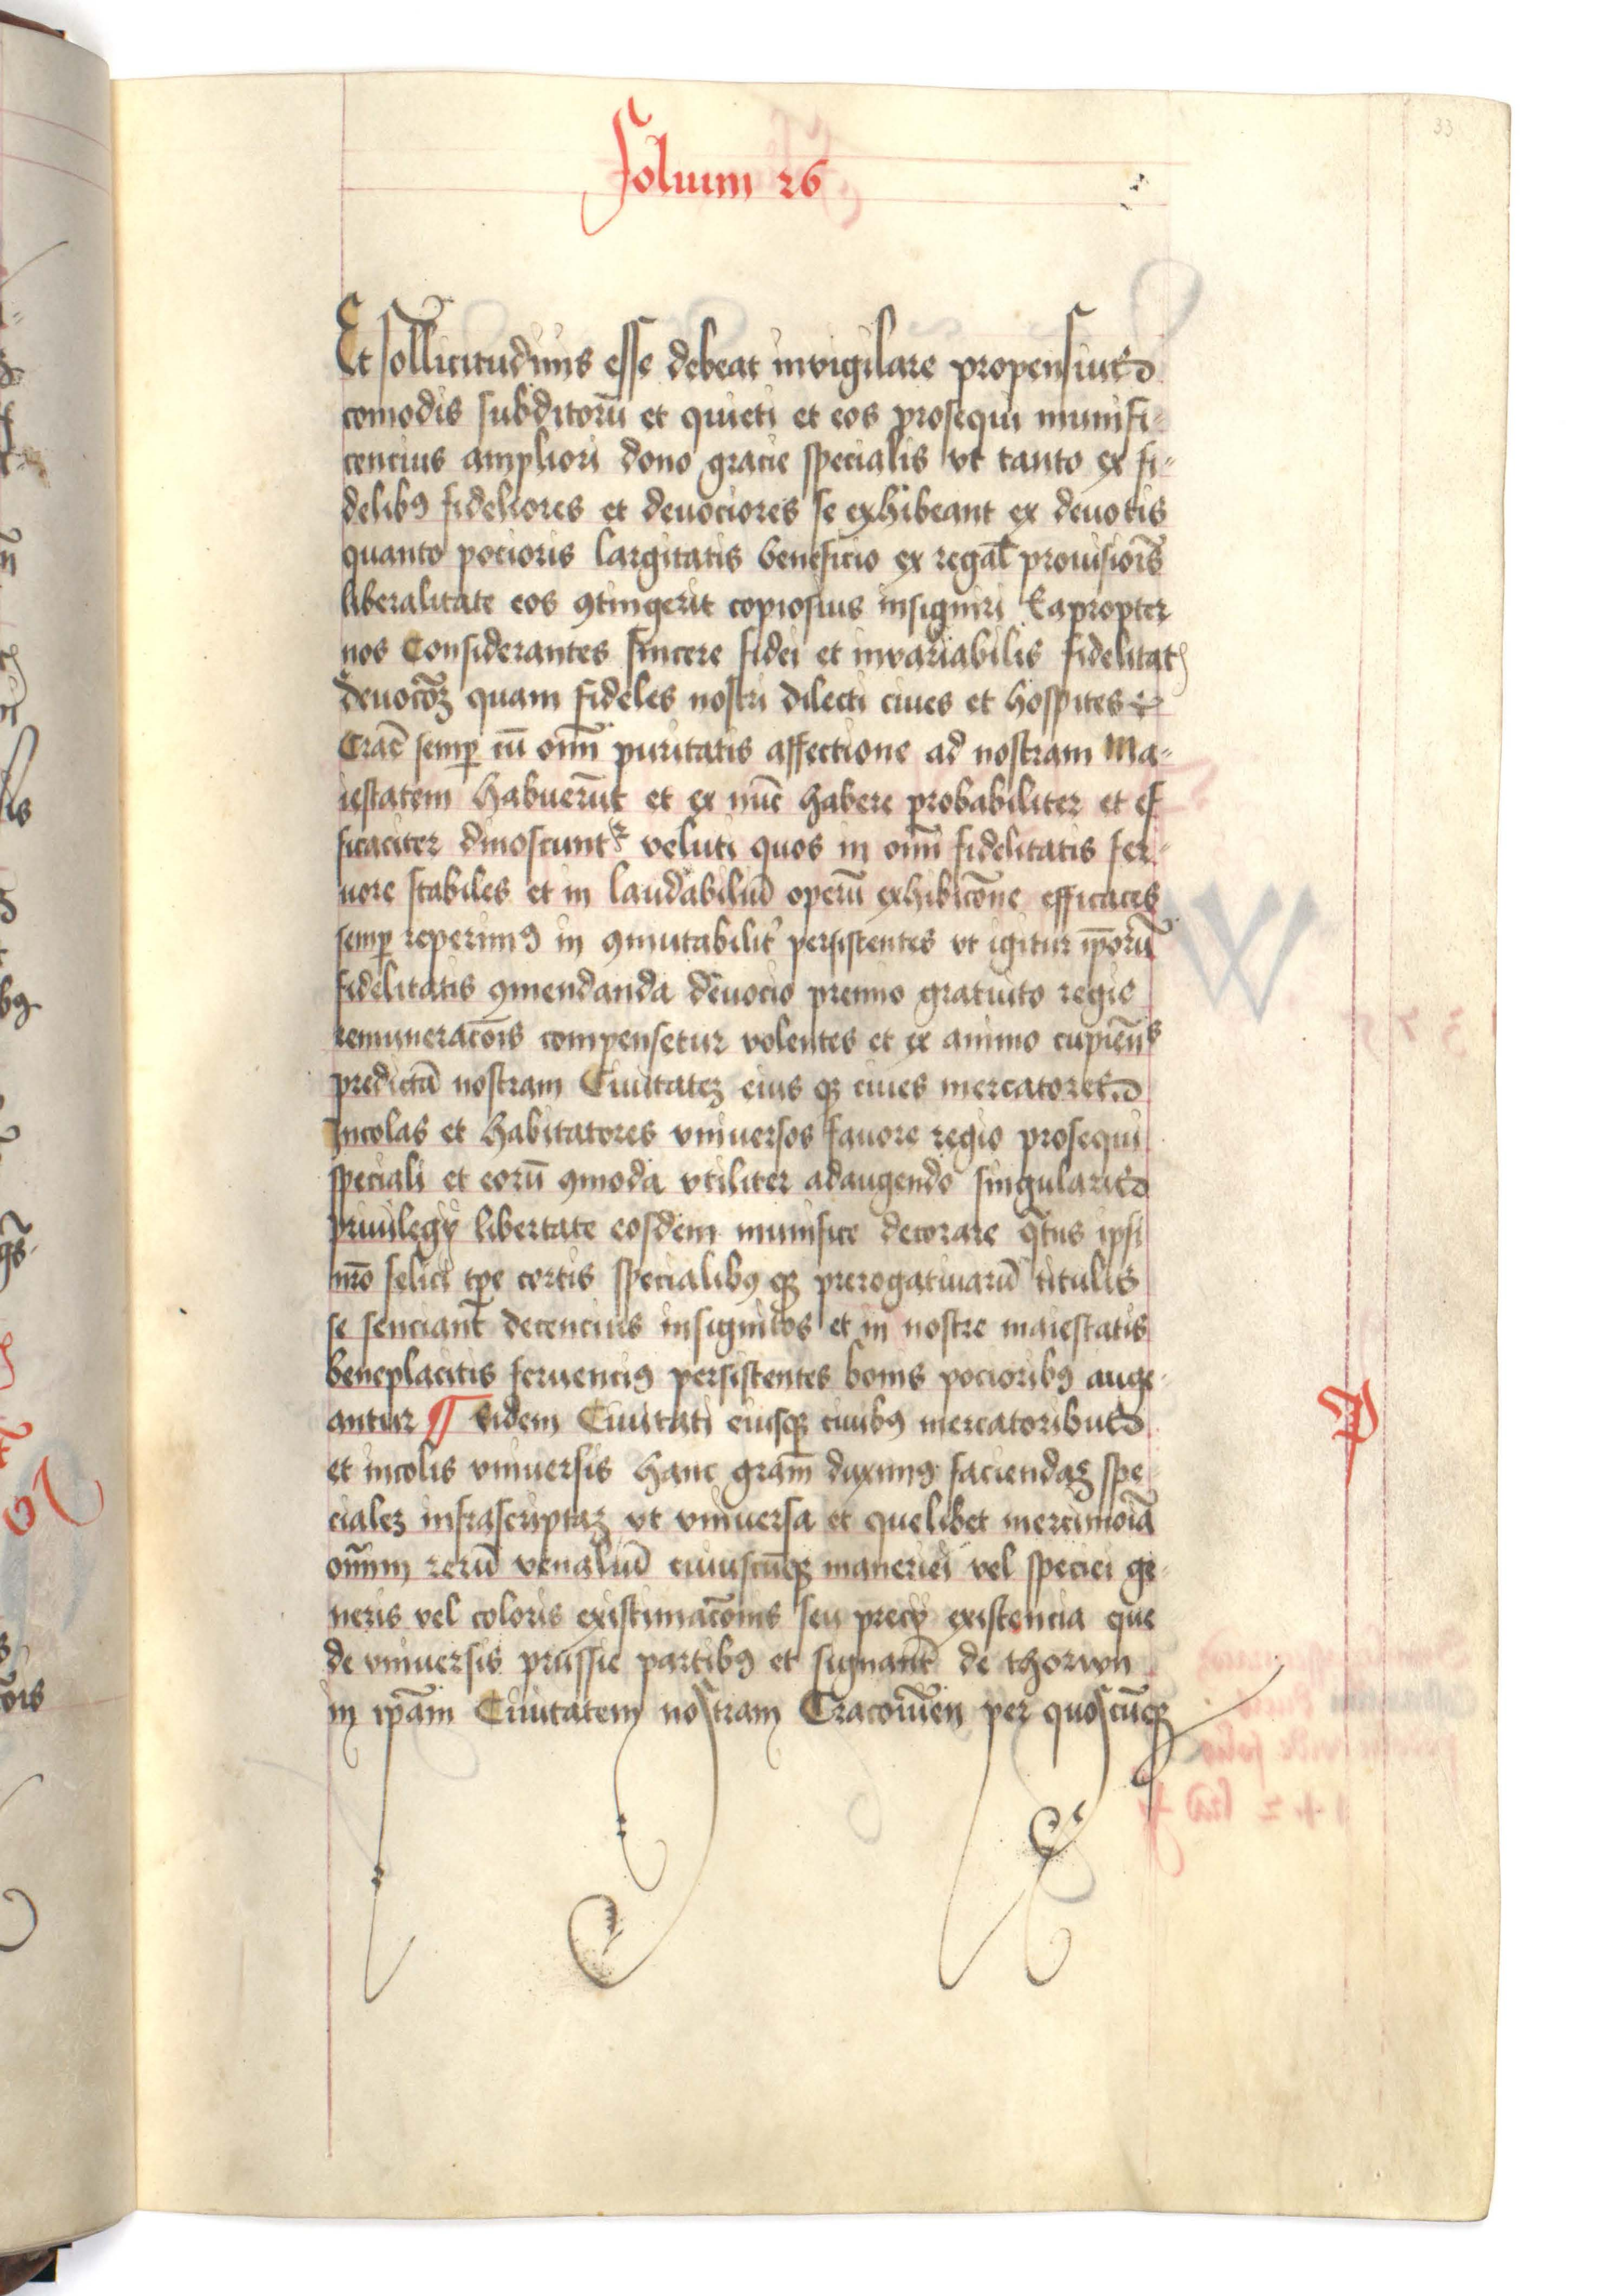 33
Folium 26
Et sollicitudinis esse debeat invigilare propensius
comodis subditorū et quieti et eos prosequi munifi-
cencius ampliori dono gracie specialis vt tanto ex fi-
delibꝯ fideliores et deuociores se exhibeant ex deuotis
quanto pocioris largitatis beneficio ex regał prouisiōis
liberalitate eos ꝯtingerit copiosius insigniri Eapropter
nos Considerantes sincere fidei et invariabilis fidelitat
deuocōꝫ quam fideles nostri dilecti ciues et hospites
Crac̄ semꝑ cū om̄i puritatis affectione ad nostram Ma-
iestatem habuerūt et ex nūc habere probabiliter et ef
ficaciter dinoscunt᷑ veluti quos in om̄i fidelitatis fer-
uore stabiles et in laudabiliū operū exhibicōne efficaces
semꝑ reperimꝯ in ꝯmutabilit᷑ persistentes vt igitur ip̄orū
fidelitatis ꝯmendanda deuocio premio gratuito regie
remuneracōis compensetur volentes et ex animo cupien̄s
predictā nostram Ciuitateꝫ eius qꝫ ciues mercatores
Incolas et habitatores vniuersos fauore regio prosequi
speciali et eorū ꝯmoda vtiliter adaugendo singularis
priuilegij libertate eosdem munifice decorare q̄tus ipsi
nr̄o felici tp̄e certis specialibꝯ qꝫ prerogatiuarū titulis
se senciant decencius insignitos et in nostre maiestatis
beneplacitis feruenciꝯ persistentes bonis pocioribꝯ auge-
antur ¶ Eidem Ciuitati eiusqꝫ ciuibꝯ mercatoribus
et incolis vniuersis hanc grām duximꝯ faciendaꝫ spe-
cialeꝫ infrascriptaꝫ vt vniuersa et quelibet mercimōia
om̄im rerū venaliū cuiuscūqꝫ maneriei vel speciei ge-
neris vel coloris existimacōnis seu precij existencia que
de vniuersis prussie partibꝯ et signant̄ de thorun
in ip̄am Ciuitatem nostram Cracouien̄ per quoscūqꝫ